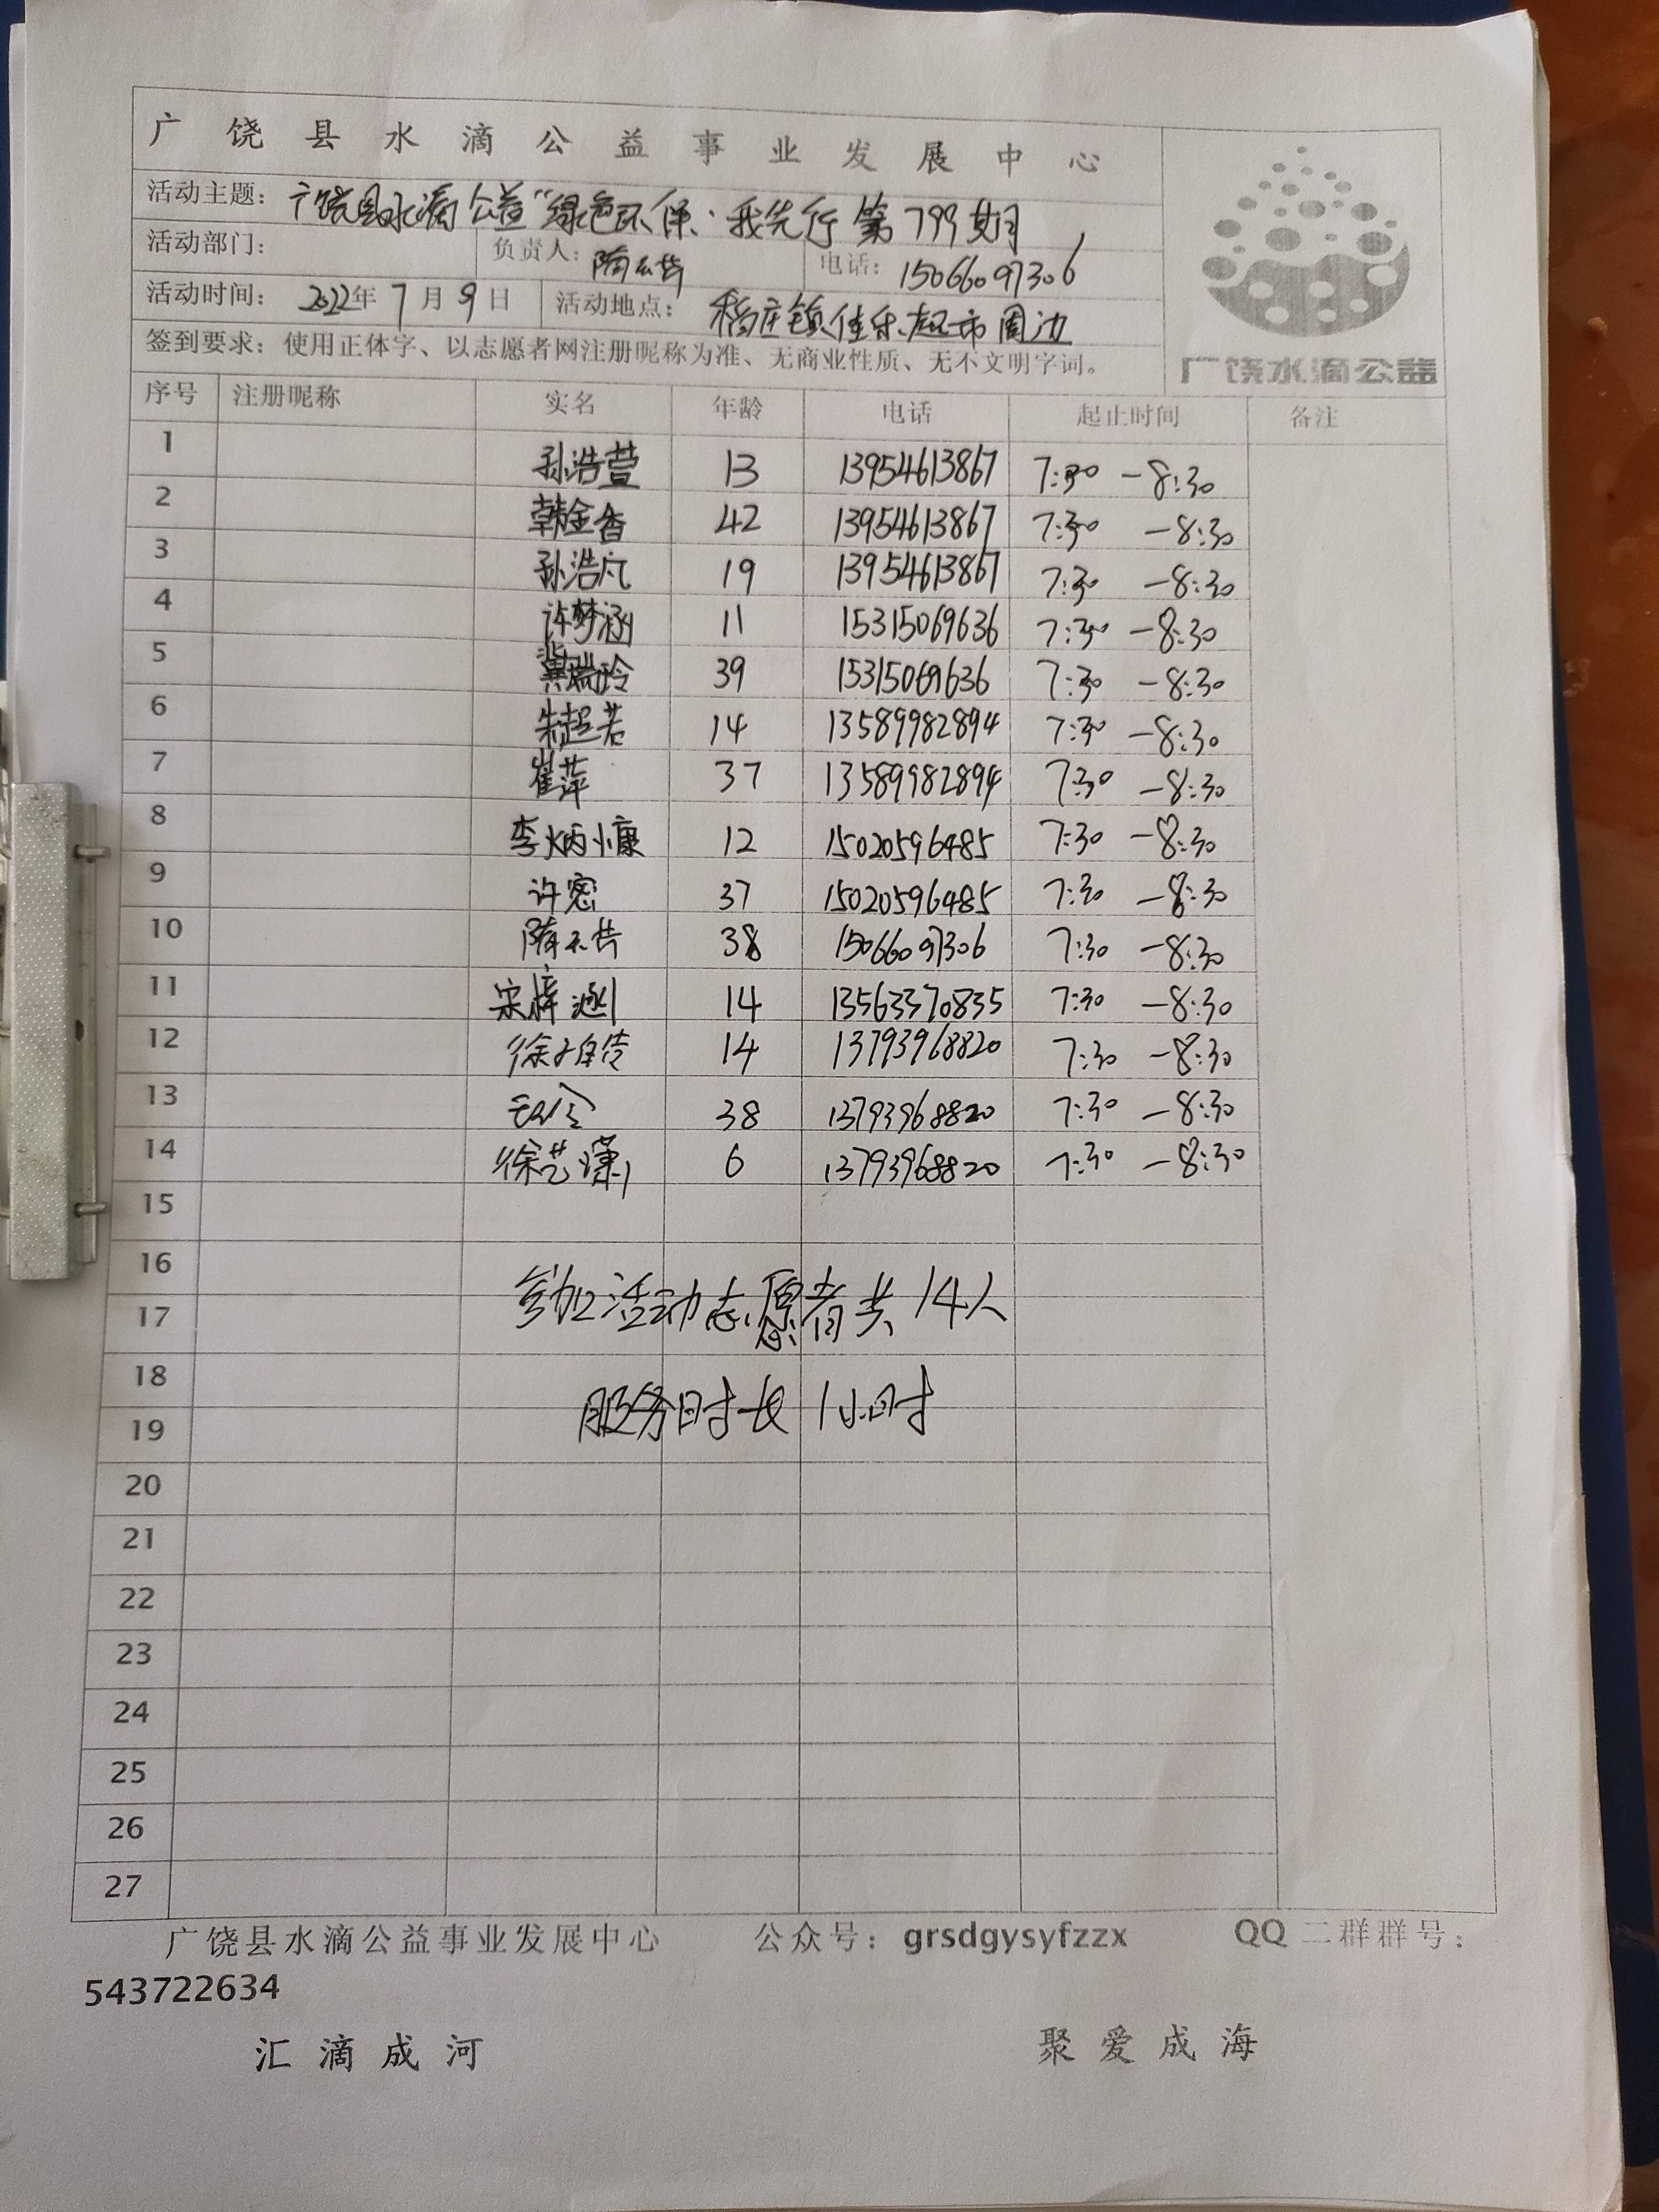 广饶县水滴公益事业发展中心
活动主题：广饶县水滴公益“绿色环保·我先行 第799期
活动部门： 负责人：隋 电话：15066097306
活动时间：2022年7月9日 活动地点：稻庄镇佳乐超市周边
签到要求：使用正体字、以志愿者网注册昵称为准、无商业性质、无不文明字词。
广饶水滴公益
序号 注册昵称 实名 年龄 电话 起止时间 备注
1 孙浩萱 13 13954613867 7:30 -8:30
2 韩金香 42 13954613867 7:30 -8:30
3 孙浩凡 19 13954613867 7:30 -8:30
4 许梦涵 11 15315069636 7:30 -8:30
5 冀瑞玲 39 15315069636 7:30 -8:30
6 朱超若 14 13589982894 7:30 -8:30
7 崔萍 37 13589982894 7:30 -8:30
8 李炳慷 12 15020596485 7:30 -8:30
9 许密 37 15020596485 7:30 -8:30
10 隋 38 15066097306 7:30 -8:30
11 宋梓涵 14 13563370835 7:30 -8:30
12 徐 14 13793968820 7:30 -8:30
13 38 13793968820 7:30 -8:30
14 徐艺潇 6 13793968820 7:30 -8:30
15
16
参加活动志愿者共14人
17
18
服务时长1小时
19
20
21
22
23
24
25
26
27
广饶县水滴公益事业发展中心 公众号：grsdgysyfzzx QQ二群群号：
543722634
汇滴成河 聚爱成海